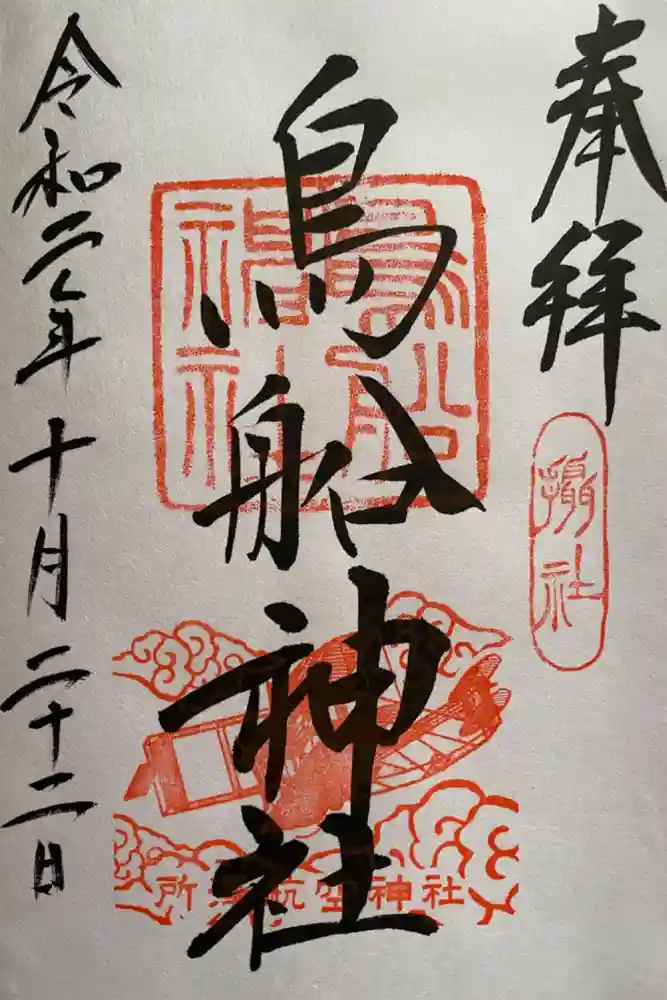 奉拝
摂社
鳥船神社
鳥船神社
所澤航空神社
令和二年十月二十二日